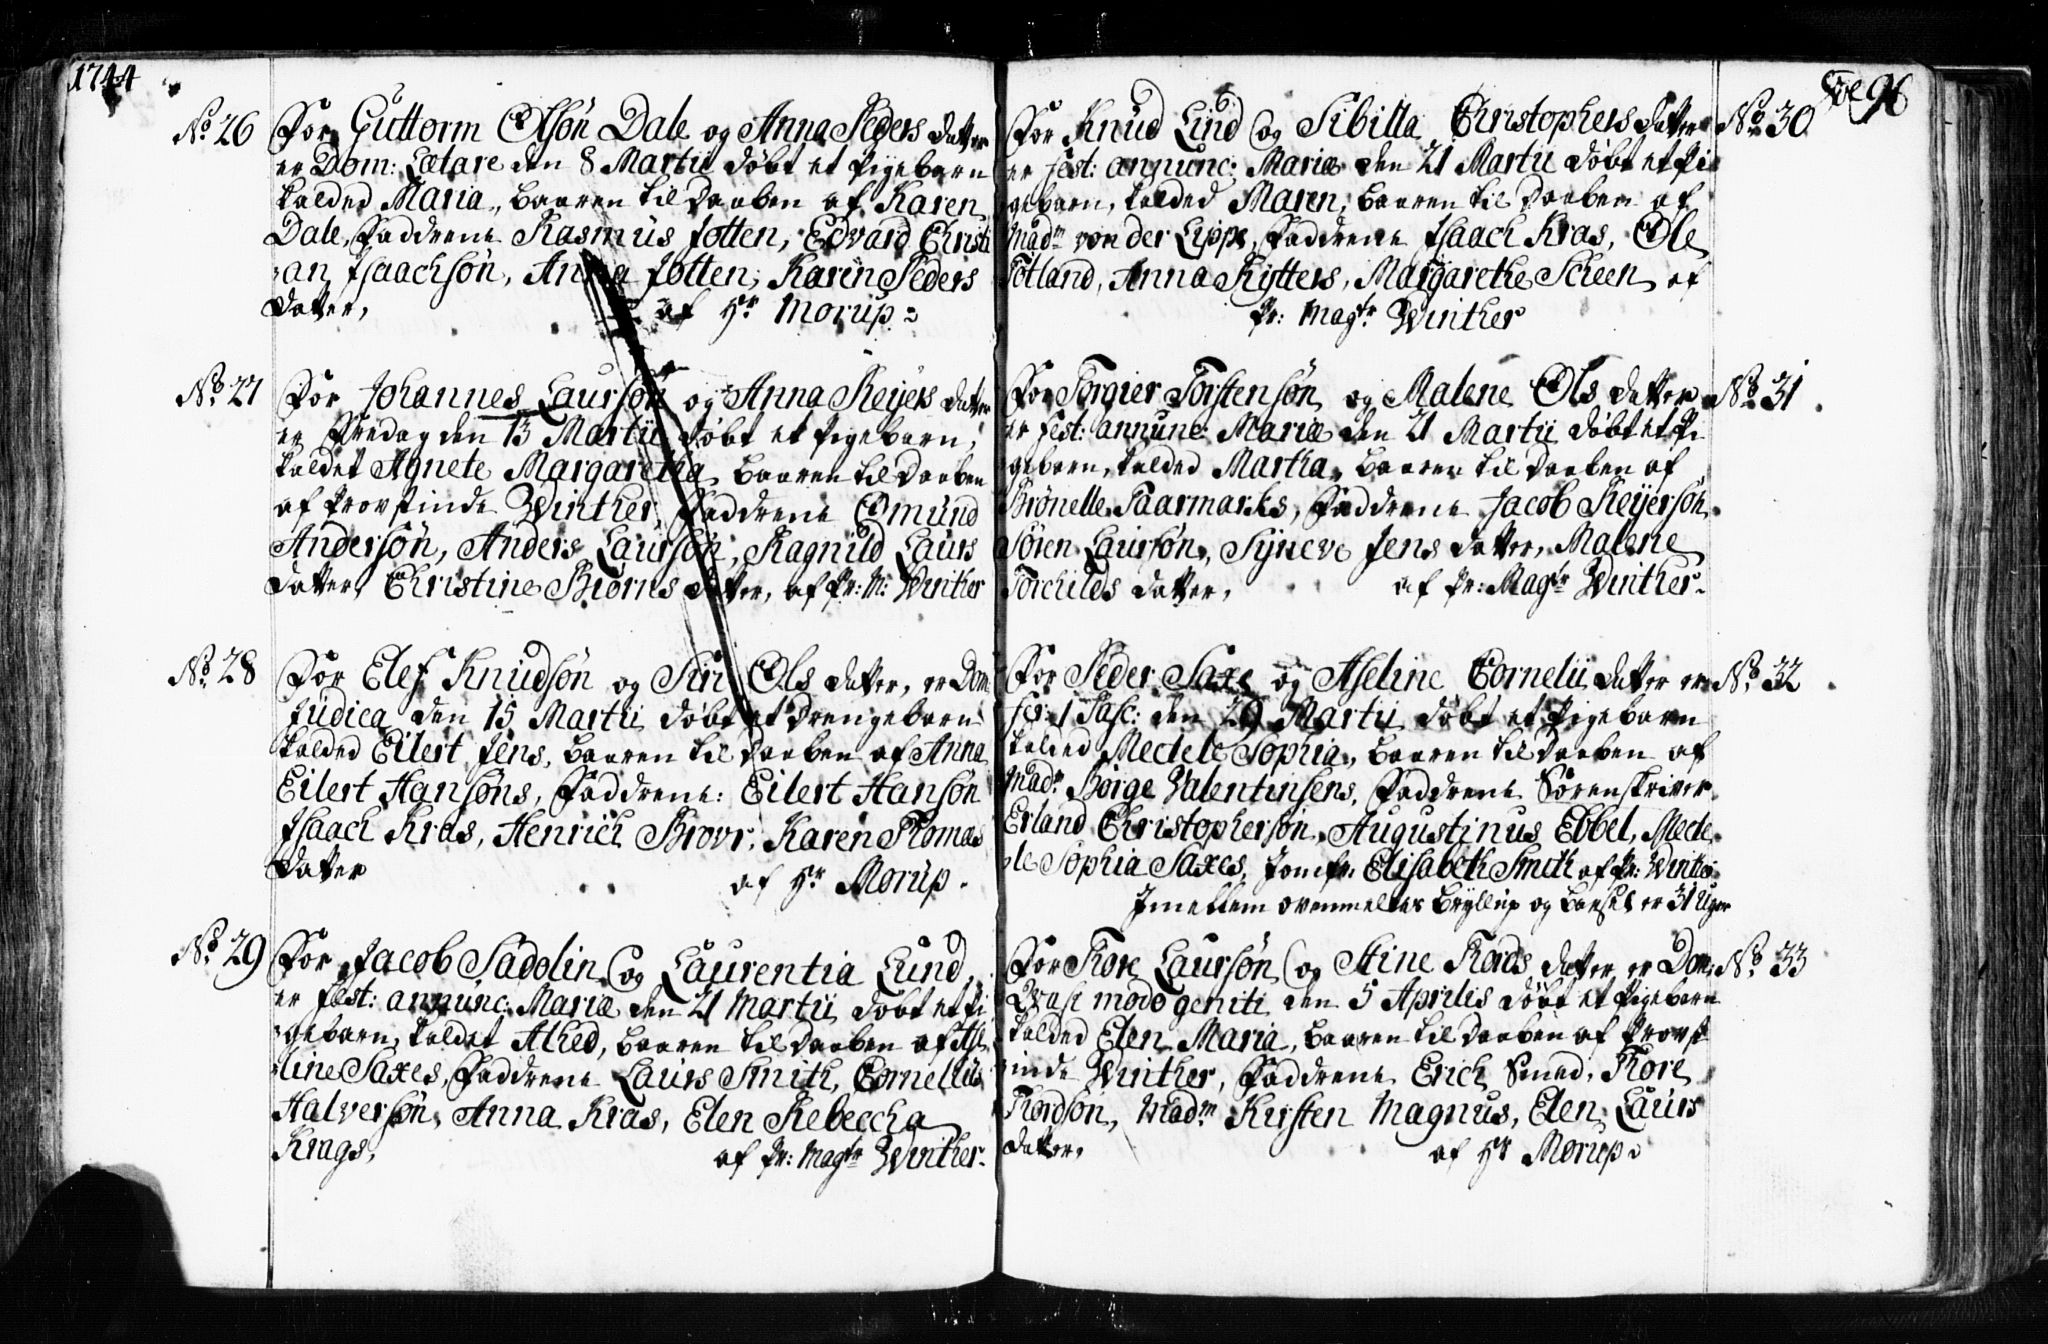 1744
No 26 For Guttorm Olsøn Dale og Anna Peders datter
er Dom: Lætare den 8 Martii døbt et Pigebarn
kalded Maria, baaren til Daaben af Karen
Dale, Faddrene Rasmus Jotten, Edvard Christi
-an Isaachsøn, Anna Jotten, Karen Peders
datter, af Hr Morup.
No 27 For Johannes Laursøn og Anna Reijers datter
er Fredag den 13 Martii døbt et Pigebarn,
kaldet Agnete Margaretha, baaren til Daaben
af Provstinde Winther, Faddrene Omund
Andersøn, Anders Laursøn, Ragnild Laurs
datter, Christine Biørns datter, af Pr: M: Winther
No 28 For Elef Knudsøn og Siri Ols datter, er Dom
Judica den 15 Martii døbt et Drengebarn
kalded Eilert Jens, baaren til Daaben af Anna
Eilert Hansøns, Faddrene: Eilert Hansøn
Isaach Kras, Henrich Brovr, Karen Thomas
datter af Hr Morup.
No 29 For Jacob Sadolin og Laurentia Lund,
er Fest: annunc: Mariæ den 21 Martii døbt et Pi
-gebarn, kaldet Alhed, baaren til Daaben af Ase
-line Saxes, Faddrene Laurs Smith, Cornelius
Halversøn, Anna Kras, Elen Rebeccha
Krags, af Pr: Magtr Winther.
96
For Knud Lind og Sibilla Christophers datter No 30
er Fest: annunc: Mariæ den 21 Martii døbt et Pi
gebarn, kalded Maren, baaren til Daaben af
Madm von der Lippe, Faddrene Isaach Kras, Ole
Totland, Anna Rytters, Margarethe Scheen, af
Pr: Magtr Winther
For Torgier Torstensøn og Malene Ols datter No 31
er Fest: annunc: Mariæ den 21 Martii døbt et Pi
gebarn, kalded Martha, baaren til Daaben af
Brønelle Taarmarks, Faddrene Jacob Reijersøn,
Søren Laursøn, Syneve Jens datter, Malene
Torchilds datter, af Pr: Magtr Winther.
For Peder Saxe og Aseline Cornelii datter er No 32
fer: 1 Pasc: den 29 Martii døbt et Pigebarn
kalded Mectele Sophia, baaren til Daaben af
Madm Børge Valentinsens, Faddrene Sørenskriver
Erland Christophersøn, Augustinus Ebbel, Mecte
-le Sophia Saxes, Jomfr. Elisabeth Smith af Pr: Winther
Imellem ovenmeltes Bryllup og Barsel er 31 Uger
For Tore Laursøn og Stine Tords datter er Dom: No 33
Qvasi modo geniti den 5 Aprilis døbt et Pigebarn
kalded Elen Maria, baaren til Daaben af Provst
inde Winther, Faddrene Erich Smed, Tore
Tordsøn, Madm Kirsten Magnus, Elen Laurs
datter, af Hr Morup.